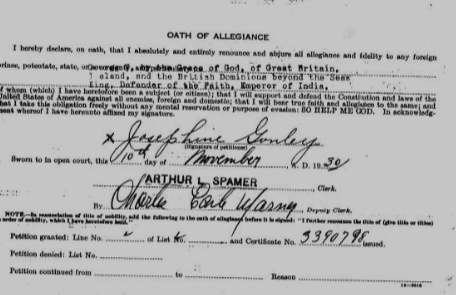 OATH OF ALLEGIANCE
I hereby declare, on oath, that I absolutely and entirely renounce and abjure all allegiance and fidelity to any foreign
prince, potentate, state, or George V, by the Grace of God, of Great Britain,
Ireland, and the British Dominions beyond the Seas
King, Defender of the Faith, Emperor of India,
of whom (which) I have heretofore been a subject (or citizen); that I will support and defend the Constitution and laws of the
United States of America against all enemies, foreign and domestic; that I will bear true faith and allegiance to the same; and
that I take this obligation freely without any mental reservation or purpose of evasion: SO HELP ME GOD. In acknowledg-
ment whereof I have hereunto affixed my signature.
x Josephine
(Signature of petitioner)
Sworn to in open court, this 10th day of November, A. D. 1930
ARTHUR L. SPAMER, Clerk.
By Charles Earle, Deputy Clerk.
NOTE.—In renunciation of title of nobility, add the following to the oath of allegiance before it is signed: "I further renounce the title of (give title or titles)
order of nobility, which I have heretofore held."
Petition granted: Line No. of List and Certificate No. 3390798 issued.
Petition denied: List No.
Petition continued from to Reason